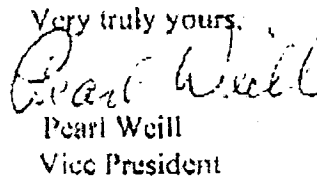 Very truly yours,
Pearl Weill
Pearl Weill
Vice President